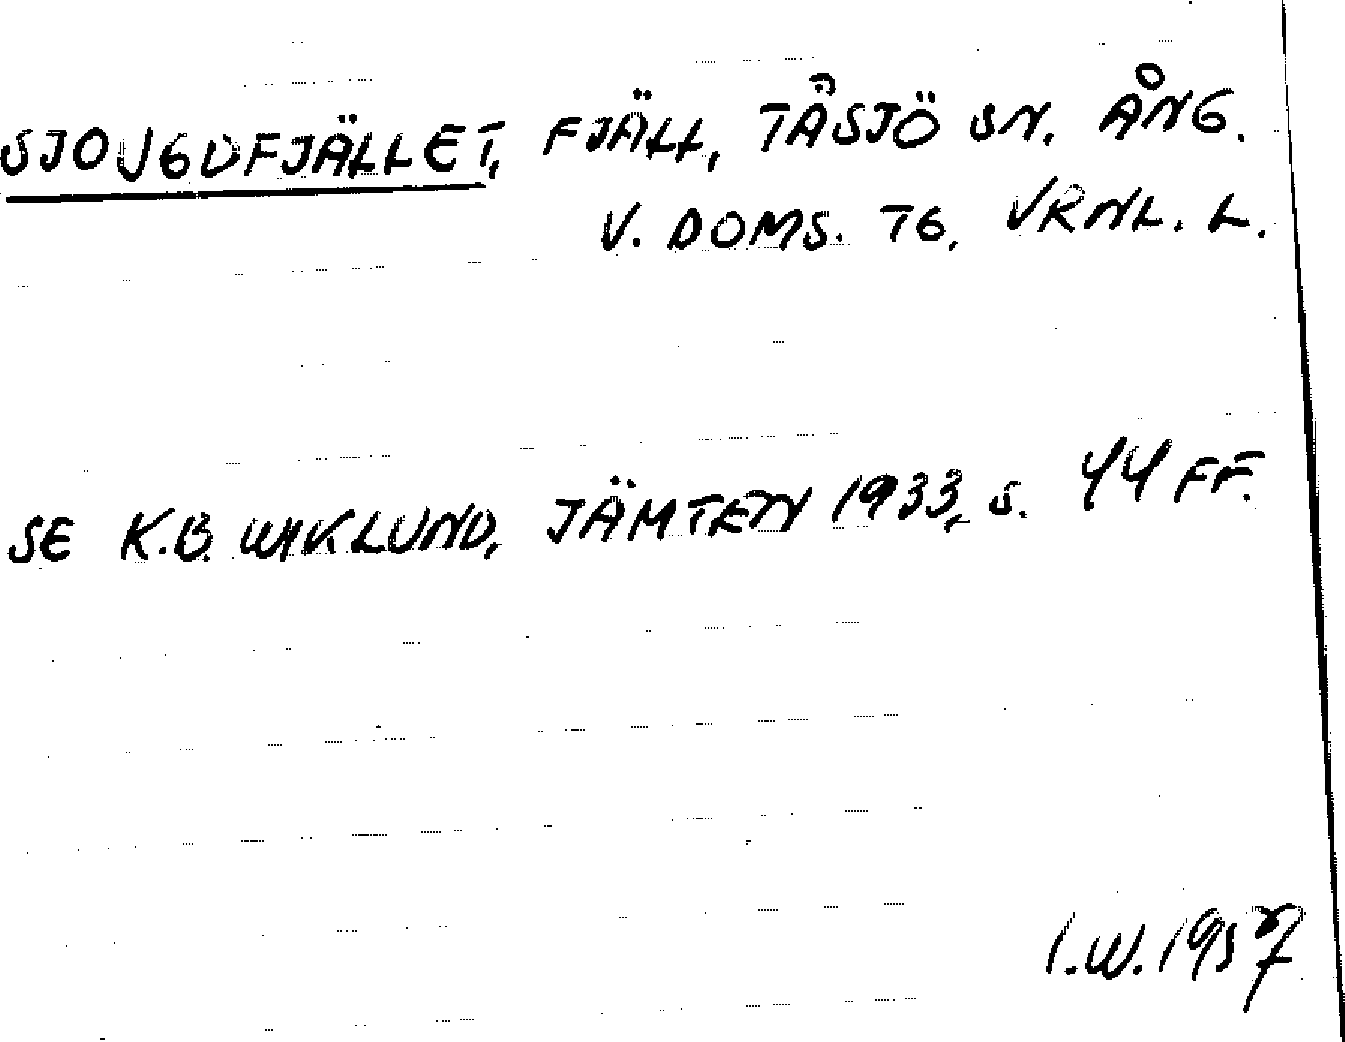 SJOUGDFJÄLLET, FJÄLL, TÅSJÖ SN. ÅNG.
V. DOMS. 76, VRNL. L.
SE K.B. WIKLUND, JÄMTEN 1933, s. 44 FF.
I.W. 1957